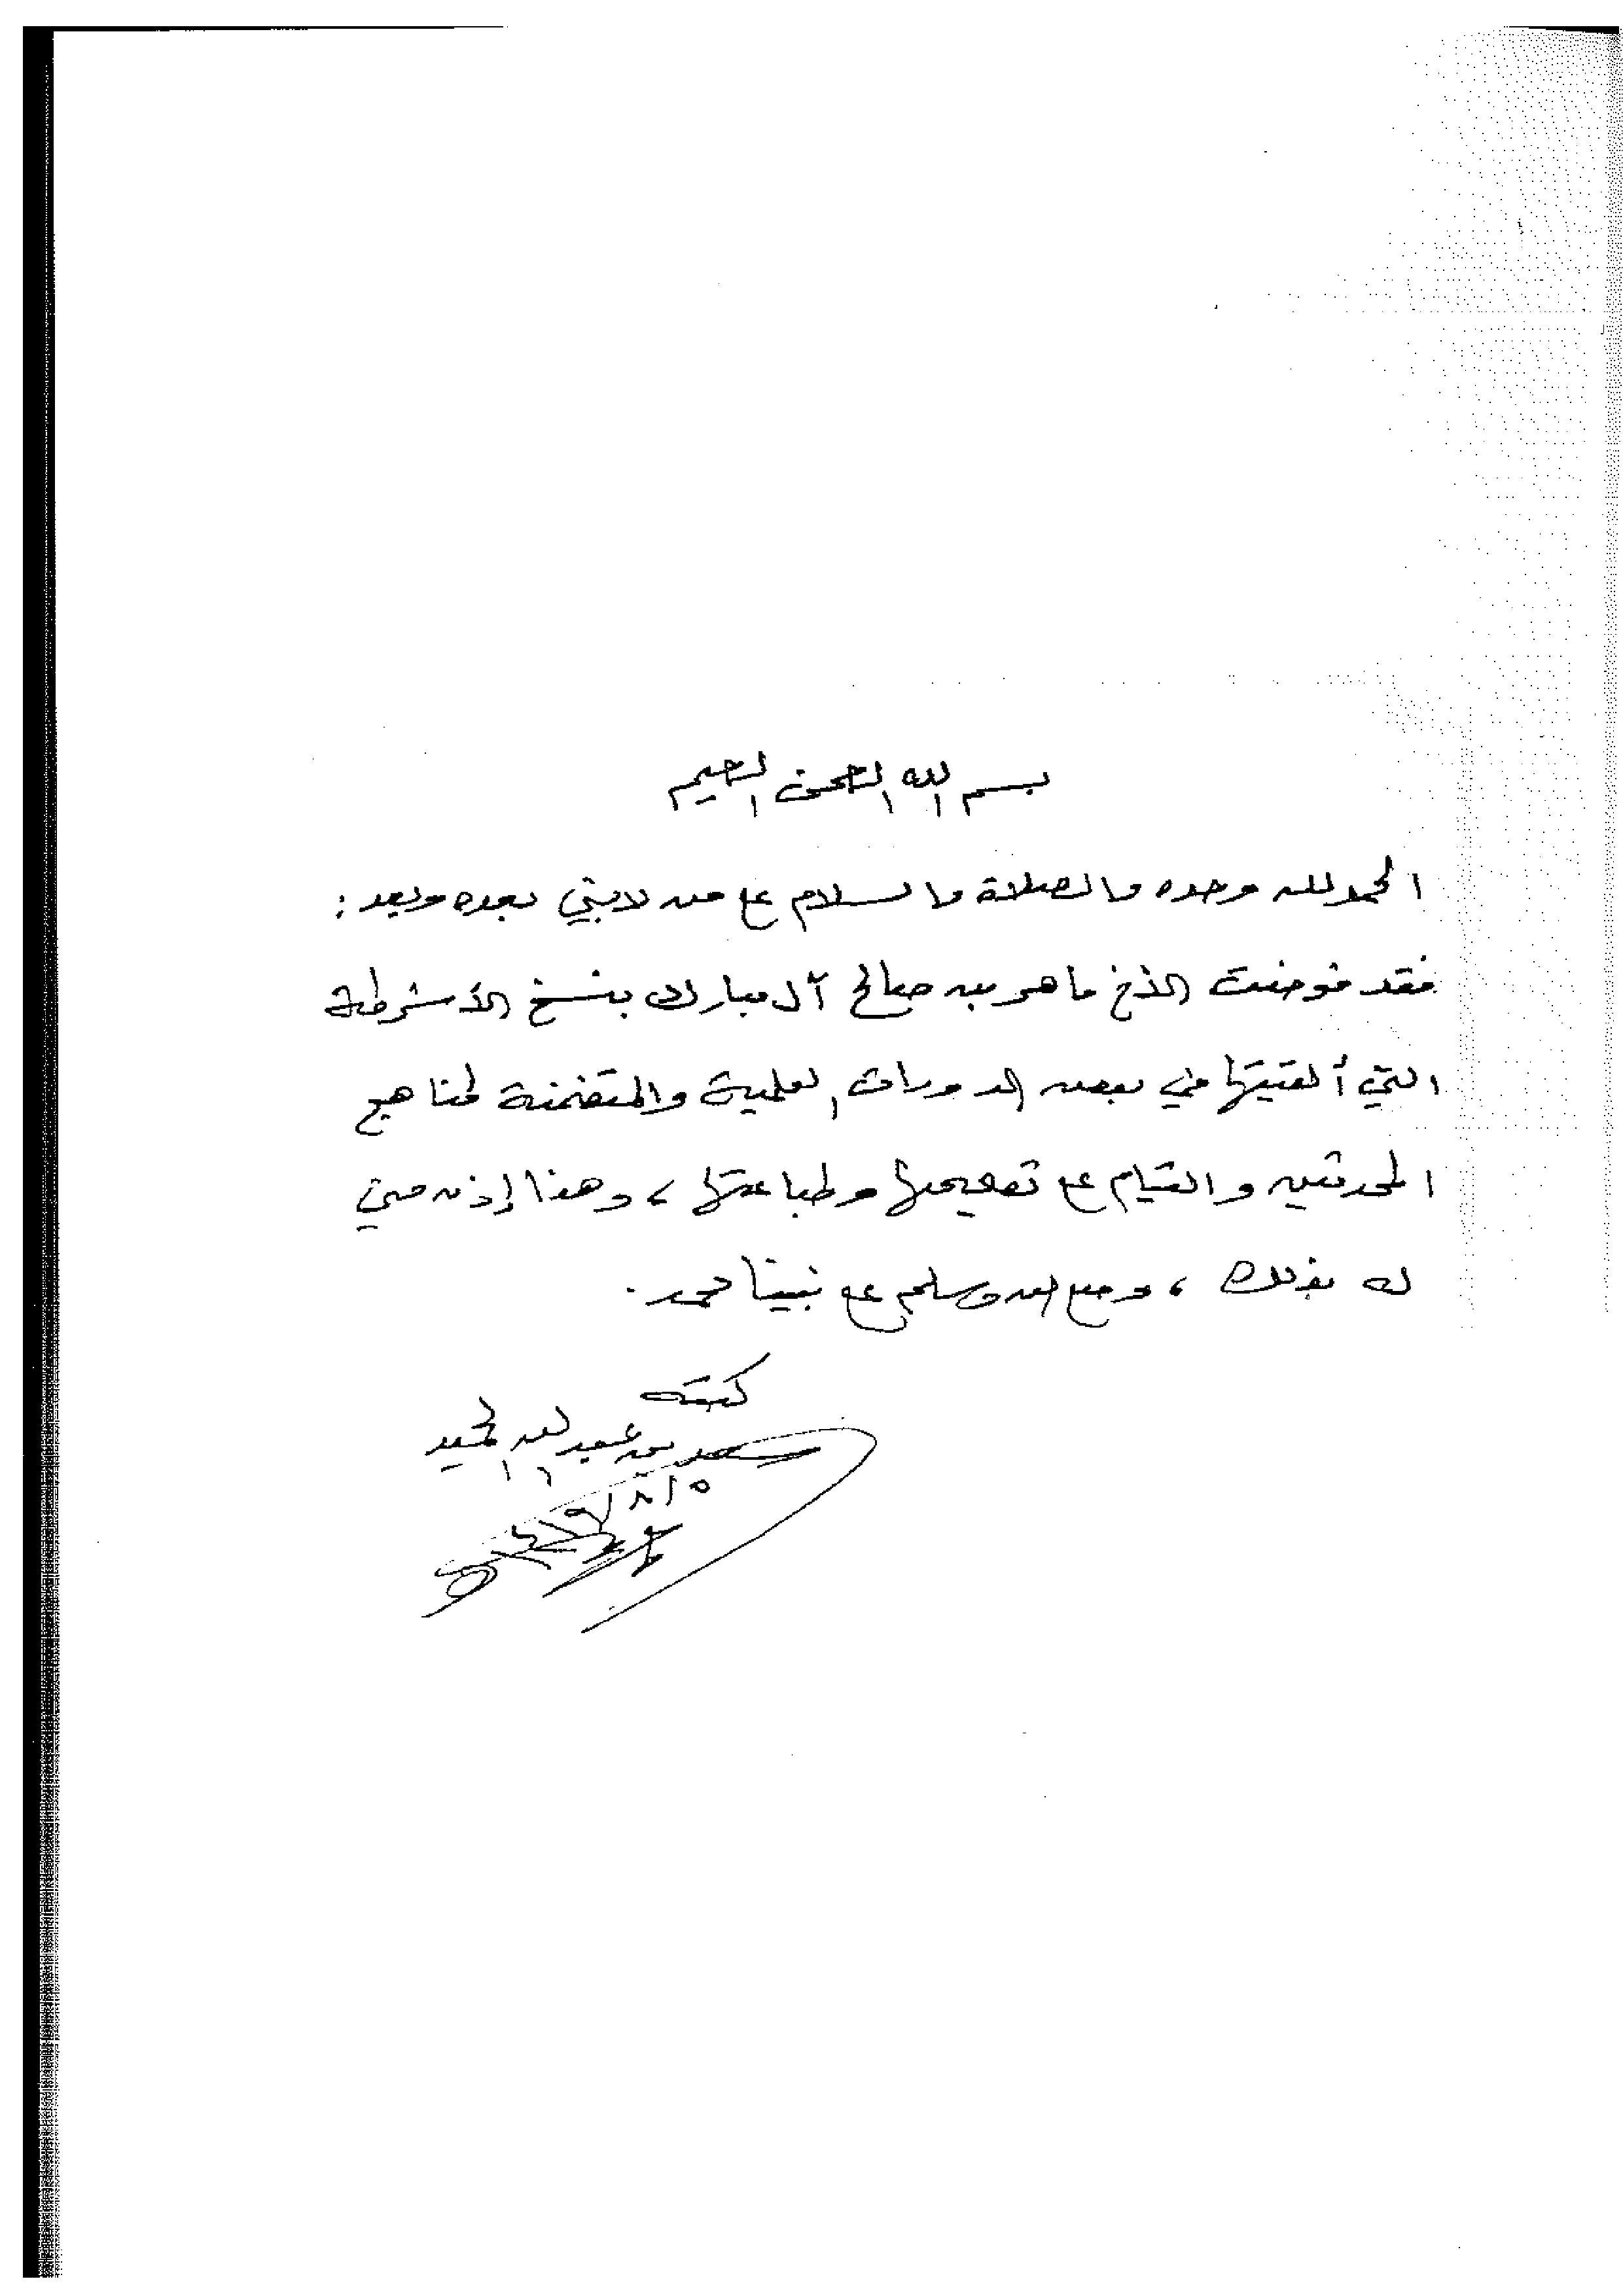 بسم الله الرحمن الرحيم
الحمد لله وحده والصلاة والسلام على من لا نبي بعده وبعد :
فقد فوضت الأخ ماهر بن صالح آل مبارك بنسخ الأشرطة
التي ألقيتها في بعض الدورات العلمية والمتضمنة لمناهج
المحدثين والقيام على تصحيحها وطباعتها ، وهذا إذن مني
له بذلك ، وصلى الله وسلم على نبينا محمد .
كتبه
سعد بن عبد الله الحميد
٥ / ٨ / ١٤١٩ هـ